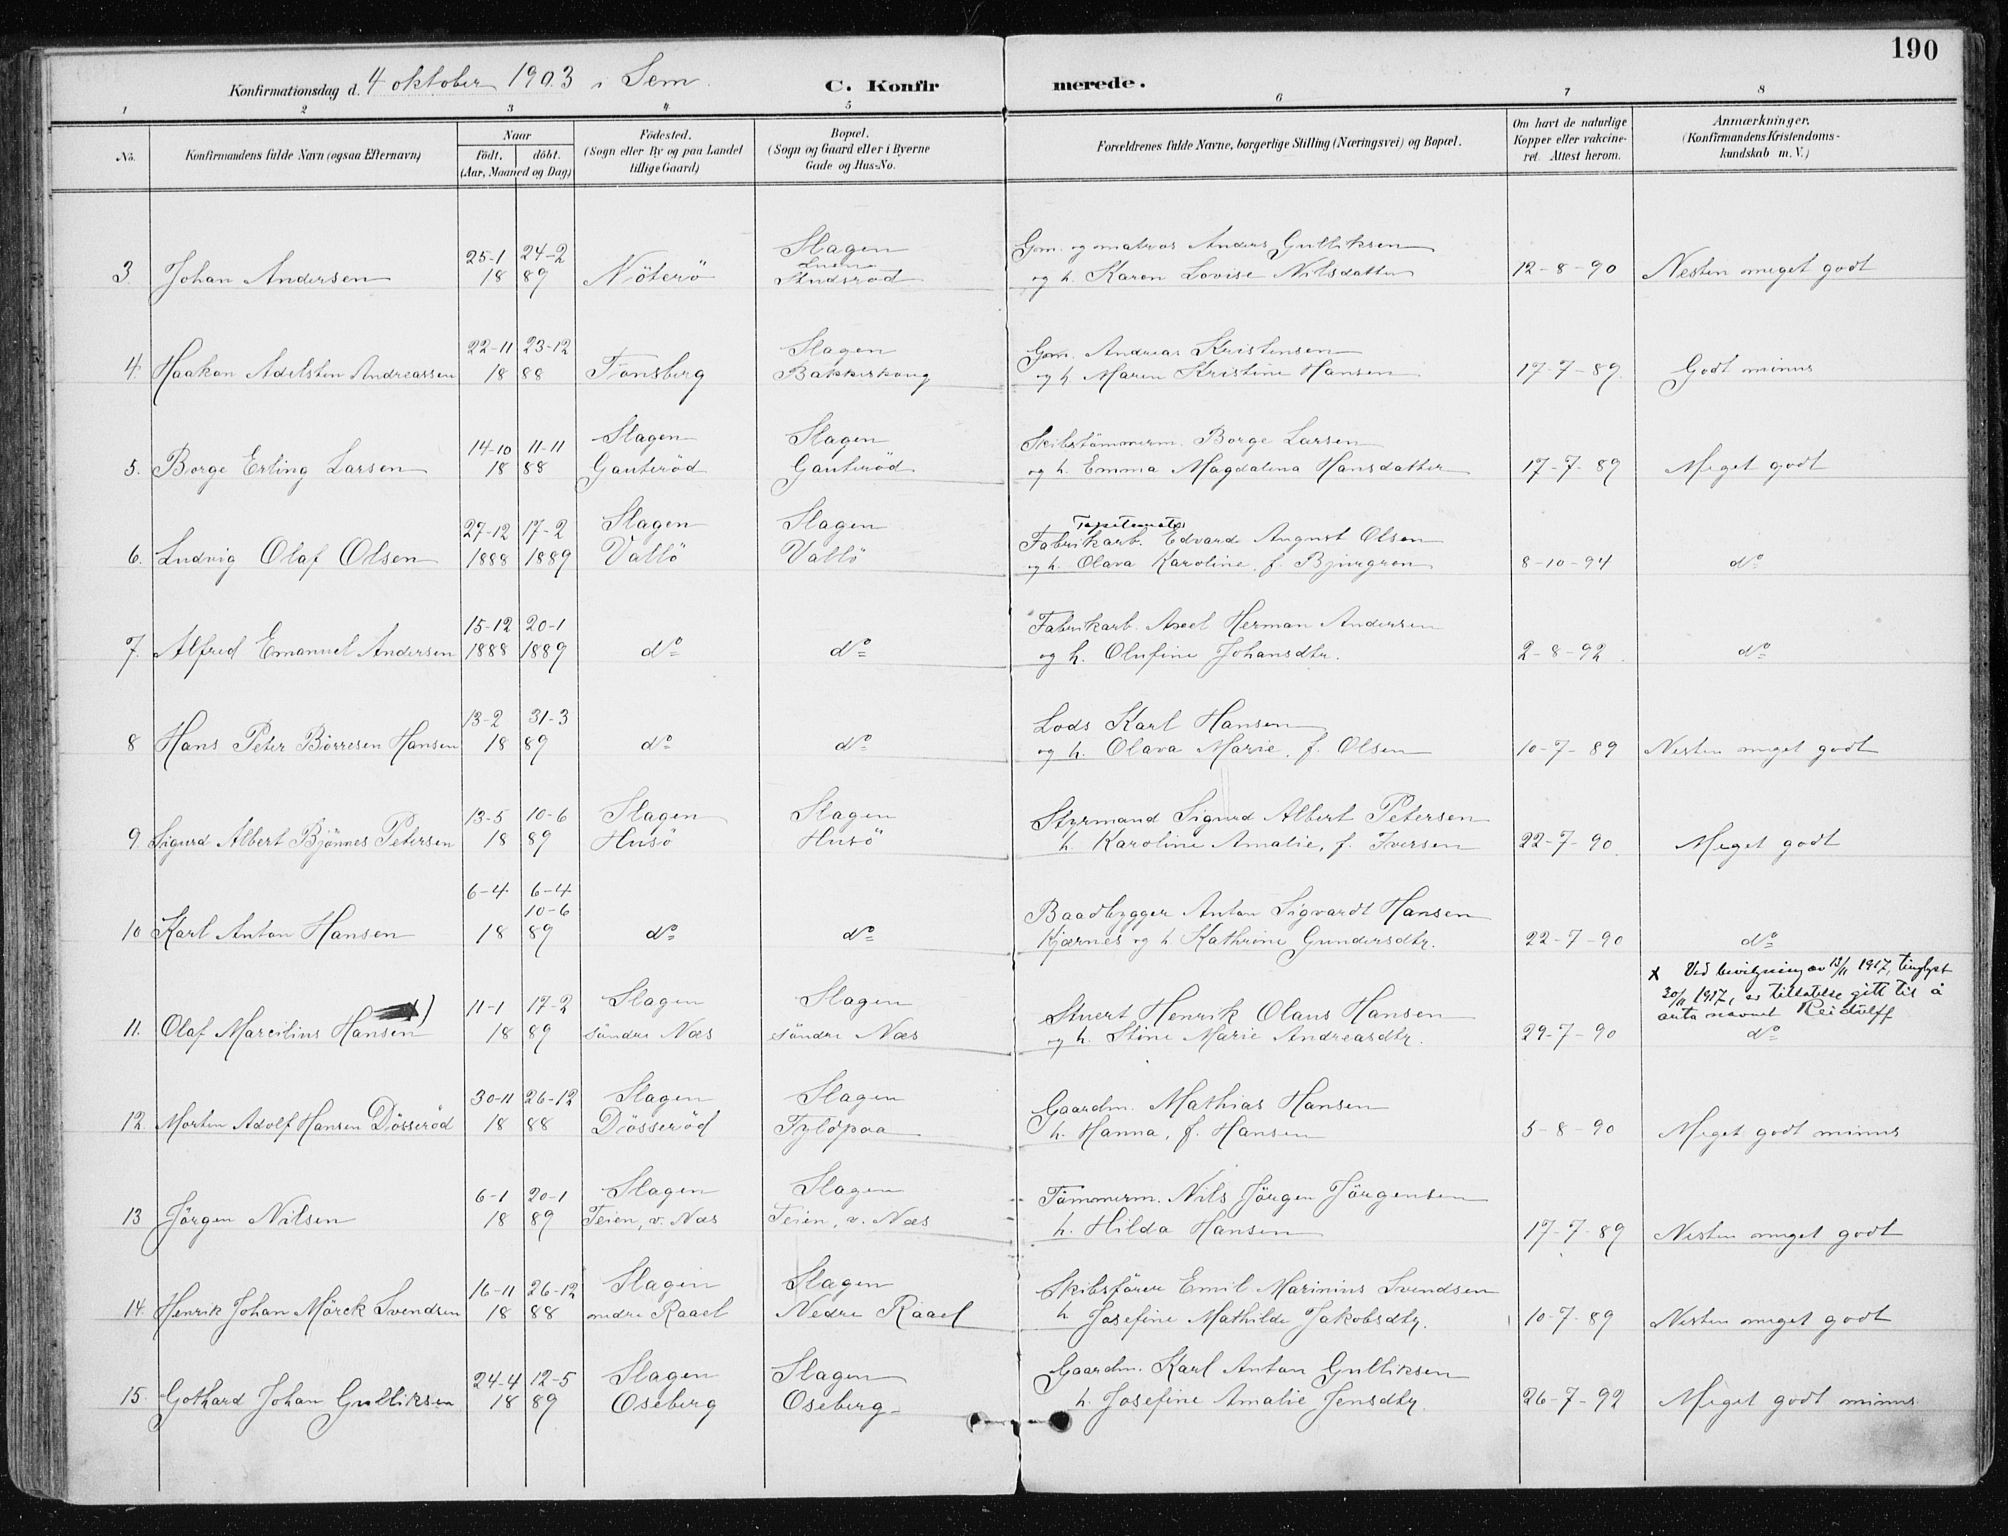 190
Konfirmationsdag d. 4 oktober 1903 i Sem.
C. Konfirmerede.
1 2 3 4 5 6 7 8
No. Konfirmandens fulde Navn (ogsaa Efternavn) Naar födt. döbt. (Aar, Maaned og Dag) Födested. (Sogn eller By og paa Landet tillige Gaard) Bopæl. (Sogn og Gaard eller i Byerne Gade og Hus-No. Forældrenes fulde Navne, borgerlige Stilling (Næringsvei) og Bopæl. Om havt de naturlige Kopper eller vakcineret. Attest herom. Anmærkninger. (Konfirmandens Kristendomskundskab m. V.)
25-1 24-2 Slagen Gm. og matros Anders Gulliksen
3. Johan Andersen 18 89 Nöterö Studsröd og h. Karen Lovise Nilsdatter 12-8-90 Nesten meget godt
22-11 23-12 Slagen Gm. Andreas Kristensen
4. Haakon Adelsten Andreassen 18 88 Tönsberg Bakkeskoug og h. Maren Kristine Hansen 17-7-89 Godt minus
14-10 11-11 Slagen Slagen Skibstömmerm. Borge Larsen
5. Borge Erling Larsen 18 88 Gauteröd Gauteröd og h. Emma Magdalena Hansdatter 17-7-89 Meget godt
27-12 17-2 Slagen Slagen Fabrikarb. Edvard August Olsen
6. Ludvig Olaf Olsen 1888 1889 Vallö Vallö og h. Olava Karoline, f. Bjurgren 8-10-94 do
15-12 20-1 Fabrikarb. Axel Herman Andersen
7. Alfred Emanuel Andersen 1888 1889 do do og h. Olufine Johansdtr. 2-8-92 do
13-2 31-3 Lods Karl Hansen
8 Hans Peter Börresen Hansen 18 89 do do og h. Olava Marie, f. Olsen 10-7-89 Nesten meget godt
13-5 10-6 Slagen Slagen Styrmand Sigurd Albert Petersen
9. Sigurd Albert Bjönnes Petersen 18 89 Husö Husö h. Karoline Amalie, f. Iversen 22-7-90 Meget godt
6-4 6-4
10-6 Baadbygger Anton Sigvardt Hansen
10 Karl Anton Hansen 18 89 do do Kjærnes og h. Kathrine Gundersdtr. 22-7-90 do
x Ved bevilgning av 13/11 1917, tinglyst
30/11 1917, er tillatelse gitt til å
anta navnet Reidulff
11-1 17-2 Slagen Slagen Stuert Henrik Olaus Hansen
11. Olaf Marcilius Hansen x) 18 89 söndre Næs söndre Næs og h. Stine Marie Andreasdtr. 29-7-90 do
30-11 26-12 Slagen Slagen Gaardm. Mathias Hansen
12. Morten Adolf Hansen Dösseröd 18 88 Dösseröd Fylöpaa h. Hanna, f. Hansen 5-8-90 Meget godt minus
6-1 20-1 Slagen Slagen Tömmerm. Nils Jörgen Jörgensen
13 Jörgen Nilsen 18 89 Teien, v. Næs Teien, v. Næs h. Hilda Hansen 17-7-89 Nesten meget godt
16-11 26-12 Slagen Slagen Skibsförer Emil Marinius Svendsen
14. Henrik Johan Mörck Svendsen 18 88 nedre Raael Nedre Raael h Josefine Mathilde Jakobsdtr. 10-7-89 Nesten meget godt
24-4 12-5 Slagen Slagen Gaardm. Karl Anton Gulliksen
15. Gothard Johan Gulliksen 18 89 Oseberg Oseberg h. Josefine Amalie Jensdtr. 26-7-92 Meget godt minus